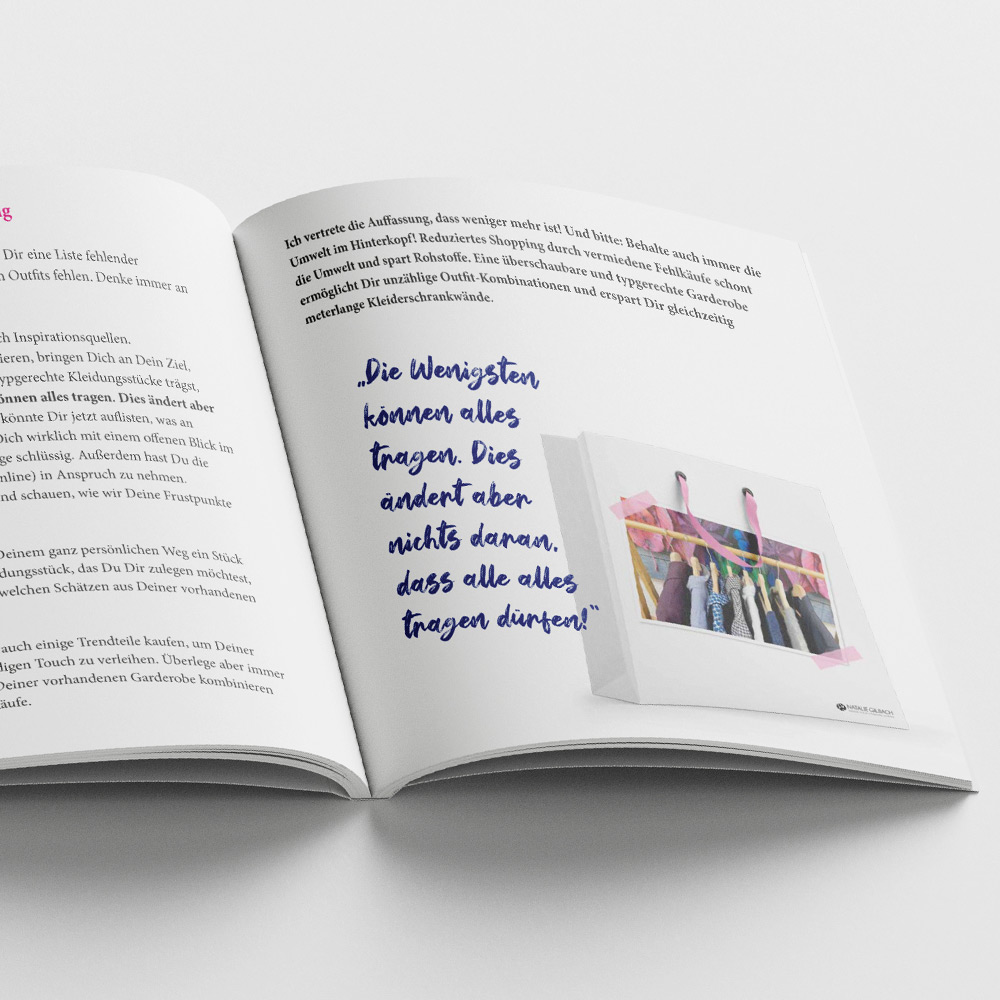 Dir eine Liste fehlender
Outfits fehlen. Denke immer an
Inspirationsquellen.
ieren, bringen Dich an Dein Ziel,
ypgerechte Kleidungsstücke trägst,
önnen alles tragen. Dies ändert aber
könnte Dir jetzt auflisten, was an
Dich wirklich mit einem offenen Blick im
ge schlüssig. Außerdem hast Du die
nline) in Anspruch zu nehmen.
nd schauen, wie wir Deine Frustpunkte
Deinem ganz persönlichen Weg ein Stück
dungsstück, das Du Dir zulegen möchtest,
welchen Schätzen aus Deiner vorhandenen
auch einige Trendteile kaufen, um Deiner
digen Touch zu verleihen. Überlege aber immer
Deiner vorhandenen Garderobe kombinieren
äufe.
Ich vertrete die Auffassung, dass weniger mehr ist! Und bitte: Behalte auch immer die
Umwelt im Hinterkopf! Reduziertes Shopping durch vermiedene Fehlkäufe schont
die Umwelt und spart Rohstoffe. Eine überschaubare und typgerechte Garderobe
ermöglicht Dir unzählige Outfit-Kombinationen und erspart Dir gleichzeitig
meterlange Kleiderschrankwände.
„Die Wenigsten
können alles
tragen. Dies
ändert aber
nichts daran,
dass alle alles
tragen dürfen!“
NATALIE GILBACH